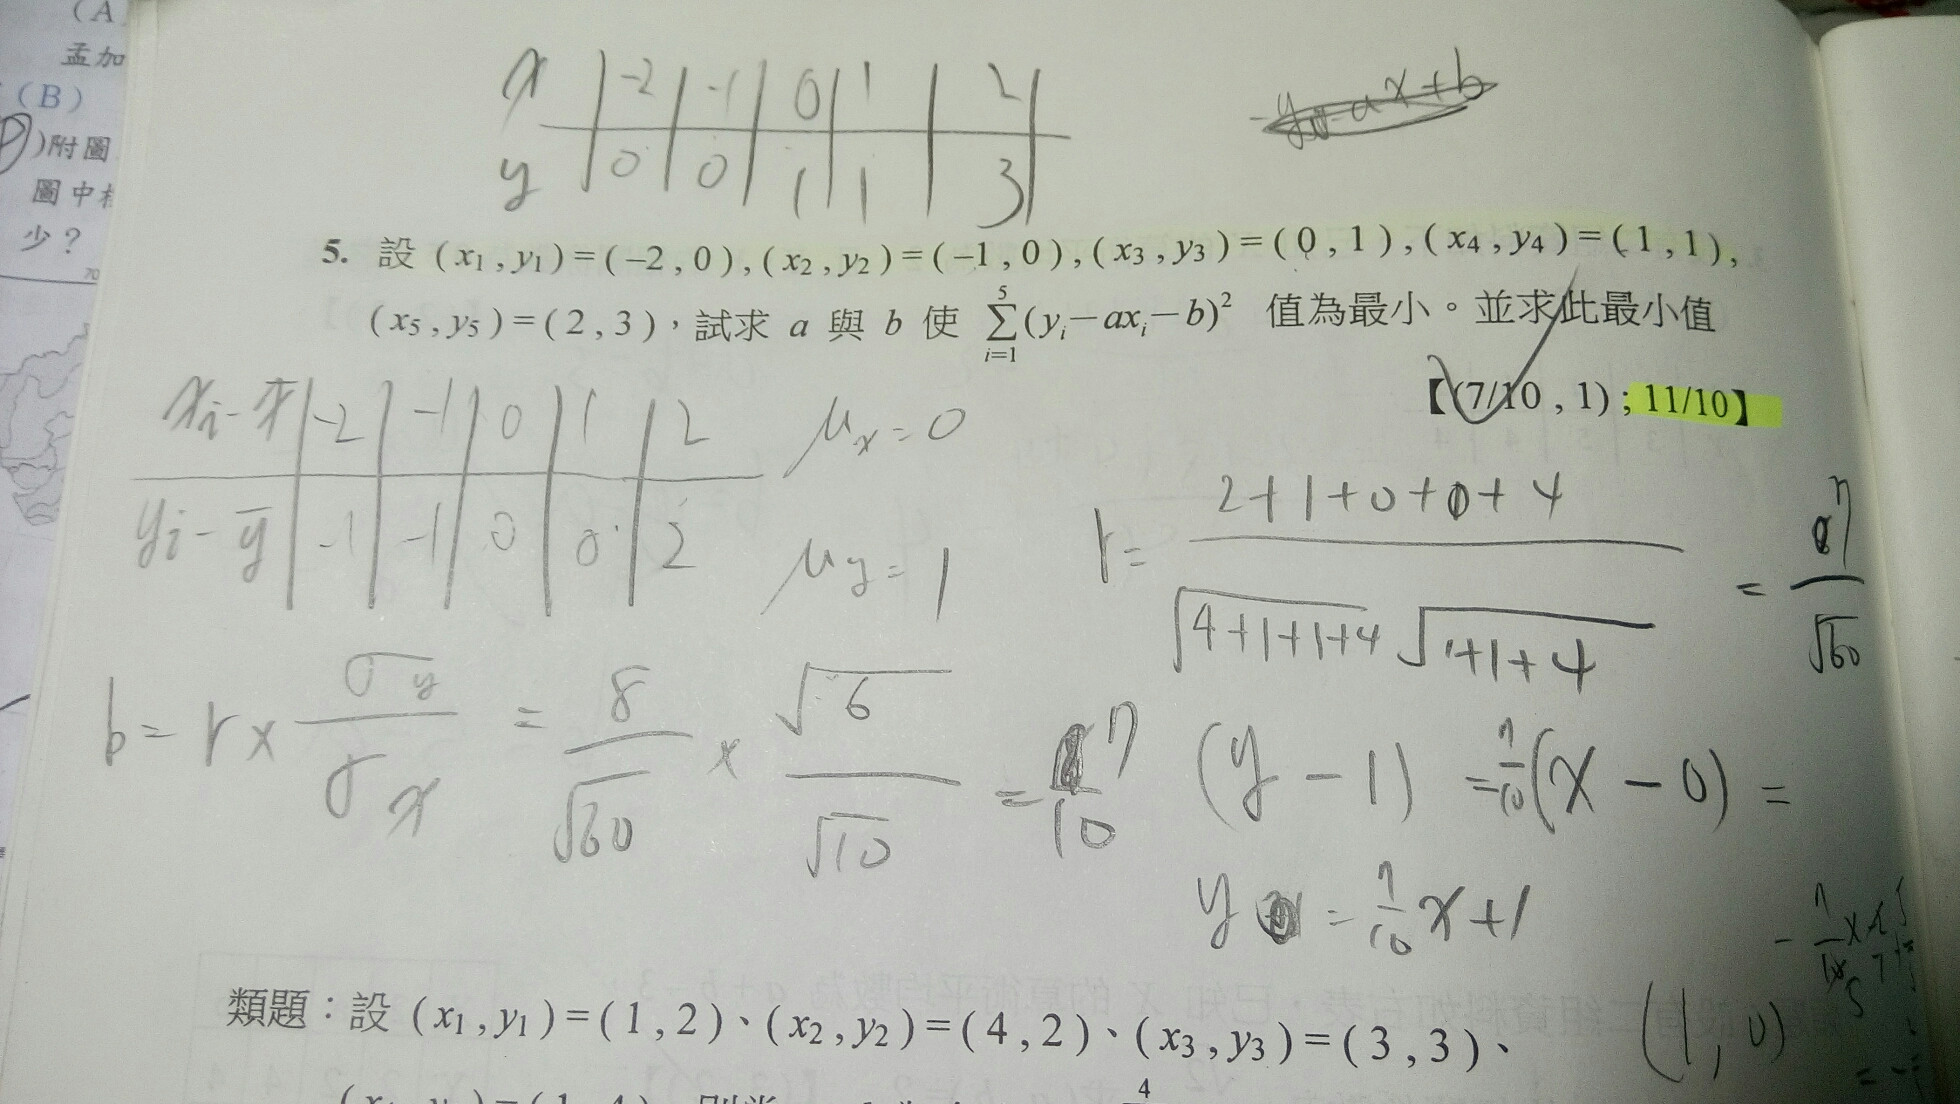 (A
孟加
(B)
)附圖
圖中
少？
x -2 -1 0 1 2
y 0 0 1 1 3
y=ax+b
5. 設 (x₁,y₁)=(−2,0),(x₂,y₂)=(−1,0),(x₃,y₃)=(0,1),(x₄,y₄)=(1,1),
(x₅,y₅)=(2,3)，試求 a 與 b 使 \sum_{i=1}^{5}(yᵢ−axᵢ−b)² 值為最小。並求此最小值
【(7/10,1);11/10】
xi-x̄ -2 -1 0 1 2 μx=0
yi-ȳ -1 -1 0 0 2 μy=1
r= (2+1+0+0+4)/(√(4+1+1+4) √(1+1+4)) = 7/√60
b=r×σy/σx = 8/√60 × √6/√10 = 7/10
(y-1) = 7/10(x-0) =
y = 7/10 x+1
(1,0)
類題：設 (x₁,y₁)=(1,2)、(x₂,y₂)=(4,2)、(x₃,y₃)=(3,3)、
4